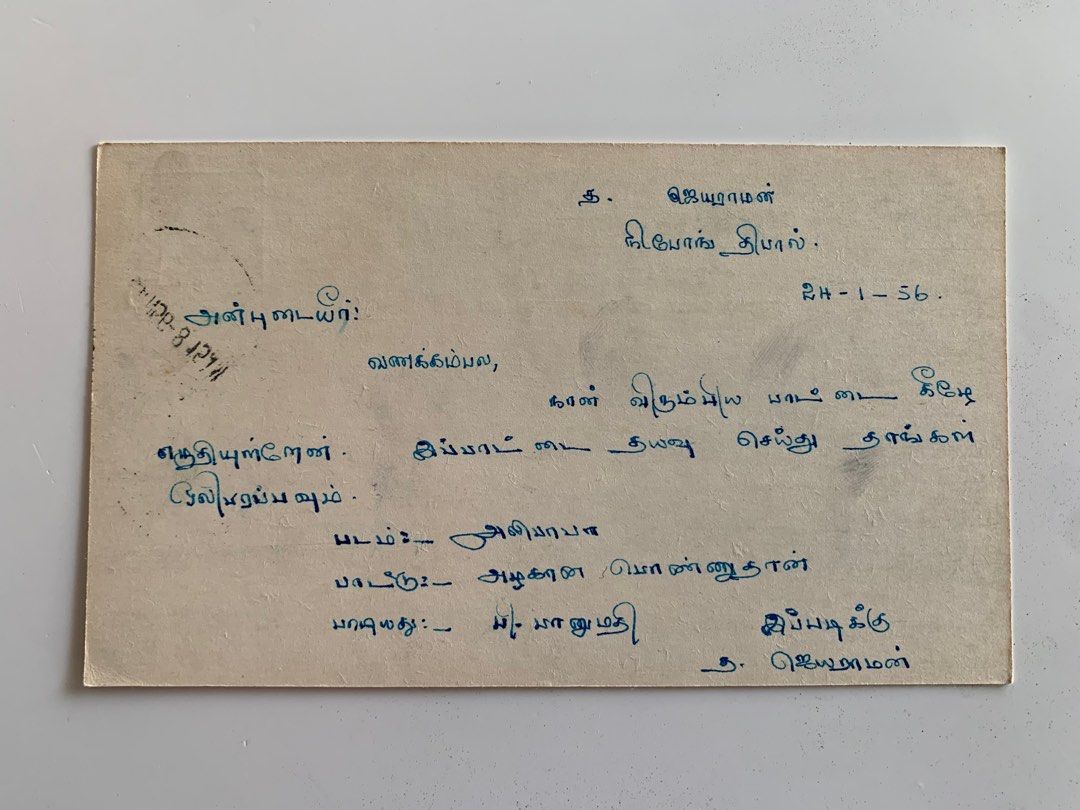 த. ஜெயராமன்
நிபோங் திபால்.
24-1-56.
அன்புடையீர்:
வணக்கம்பல,
நான் விரும்பிய பாட்டை கீழே
எழுதியுள்ளேன். இப்பாட்டை தயவு செய்து தாங்கள்
ஒலிபரப்பவும்.
படம்:- அலிபாபா
பாட்டு:- அழகான பொண்ணுதான்
பாடியது:- பி. பானுமதி
இப்படிக்கு
த. ஜெயராமன்